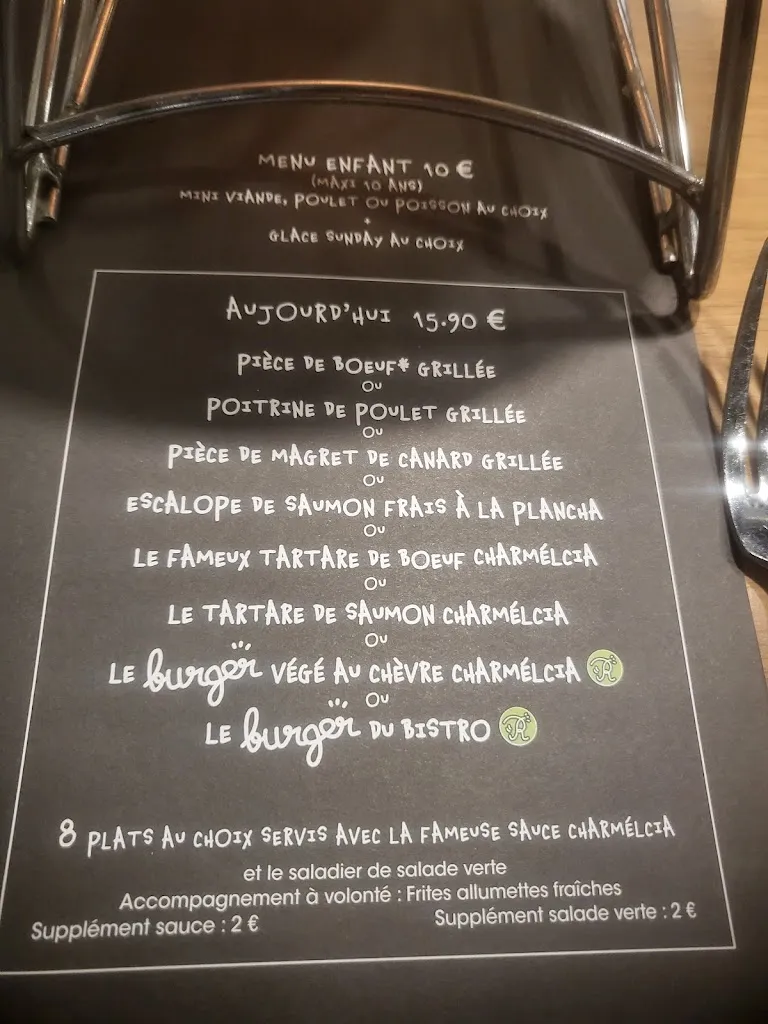 MENU ENFANT 10 €
(MAXI 10 ANS)
MINI VIANDE, POULET OU POISSON AU CHOIX
+
GLACE SUNDAY AU CHOIX
AUJOURD'HUI 15.90 €
PIÈCE DE BOEUF* GRILLÉE
OU
POITRINE DE POULET GRILLÉE
OU
PIÈCE DE MAGRET DE CANARD GRILLÉE
OU
ESCALOPE DE SAUMON FRAIS À LA PLANCHA
OU
LE FAMEUX TARTARE DE BOEUF CHARMÉLCIA
OU
LE TARTARE DE SAUMON CHARMÉLCIA
OU
LE burger VÉGÉ AU CHÈVRE CHARMÉLCIA
OU
LE burger DU BISTRO
8 PLATS AU CHOIX SERVIS AVEC LA FAMEUSE SAUCE CHARMÉLCIA
et le saladier de salade verte
Accompagnement à volonté : Frites allumettes fraîches
Supplément sauce : 2 € Supplément salade verte : 2 €